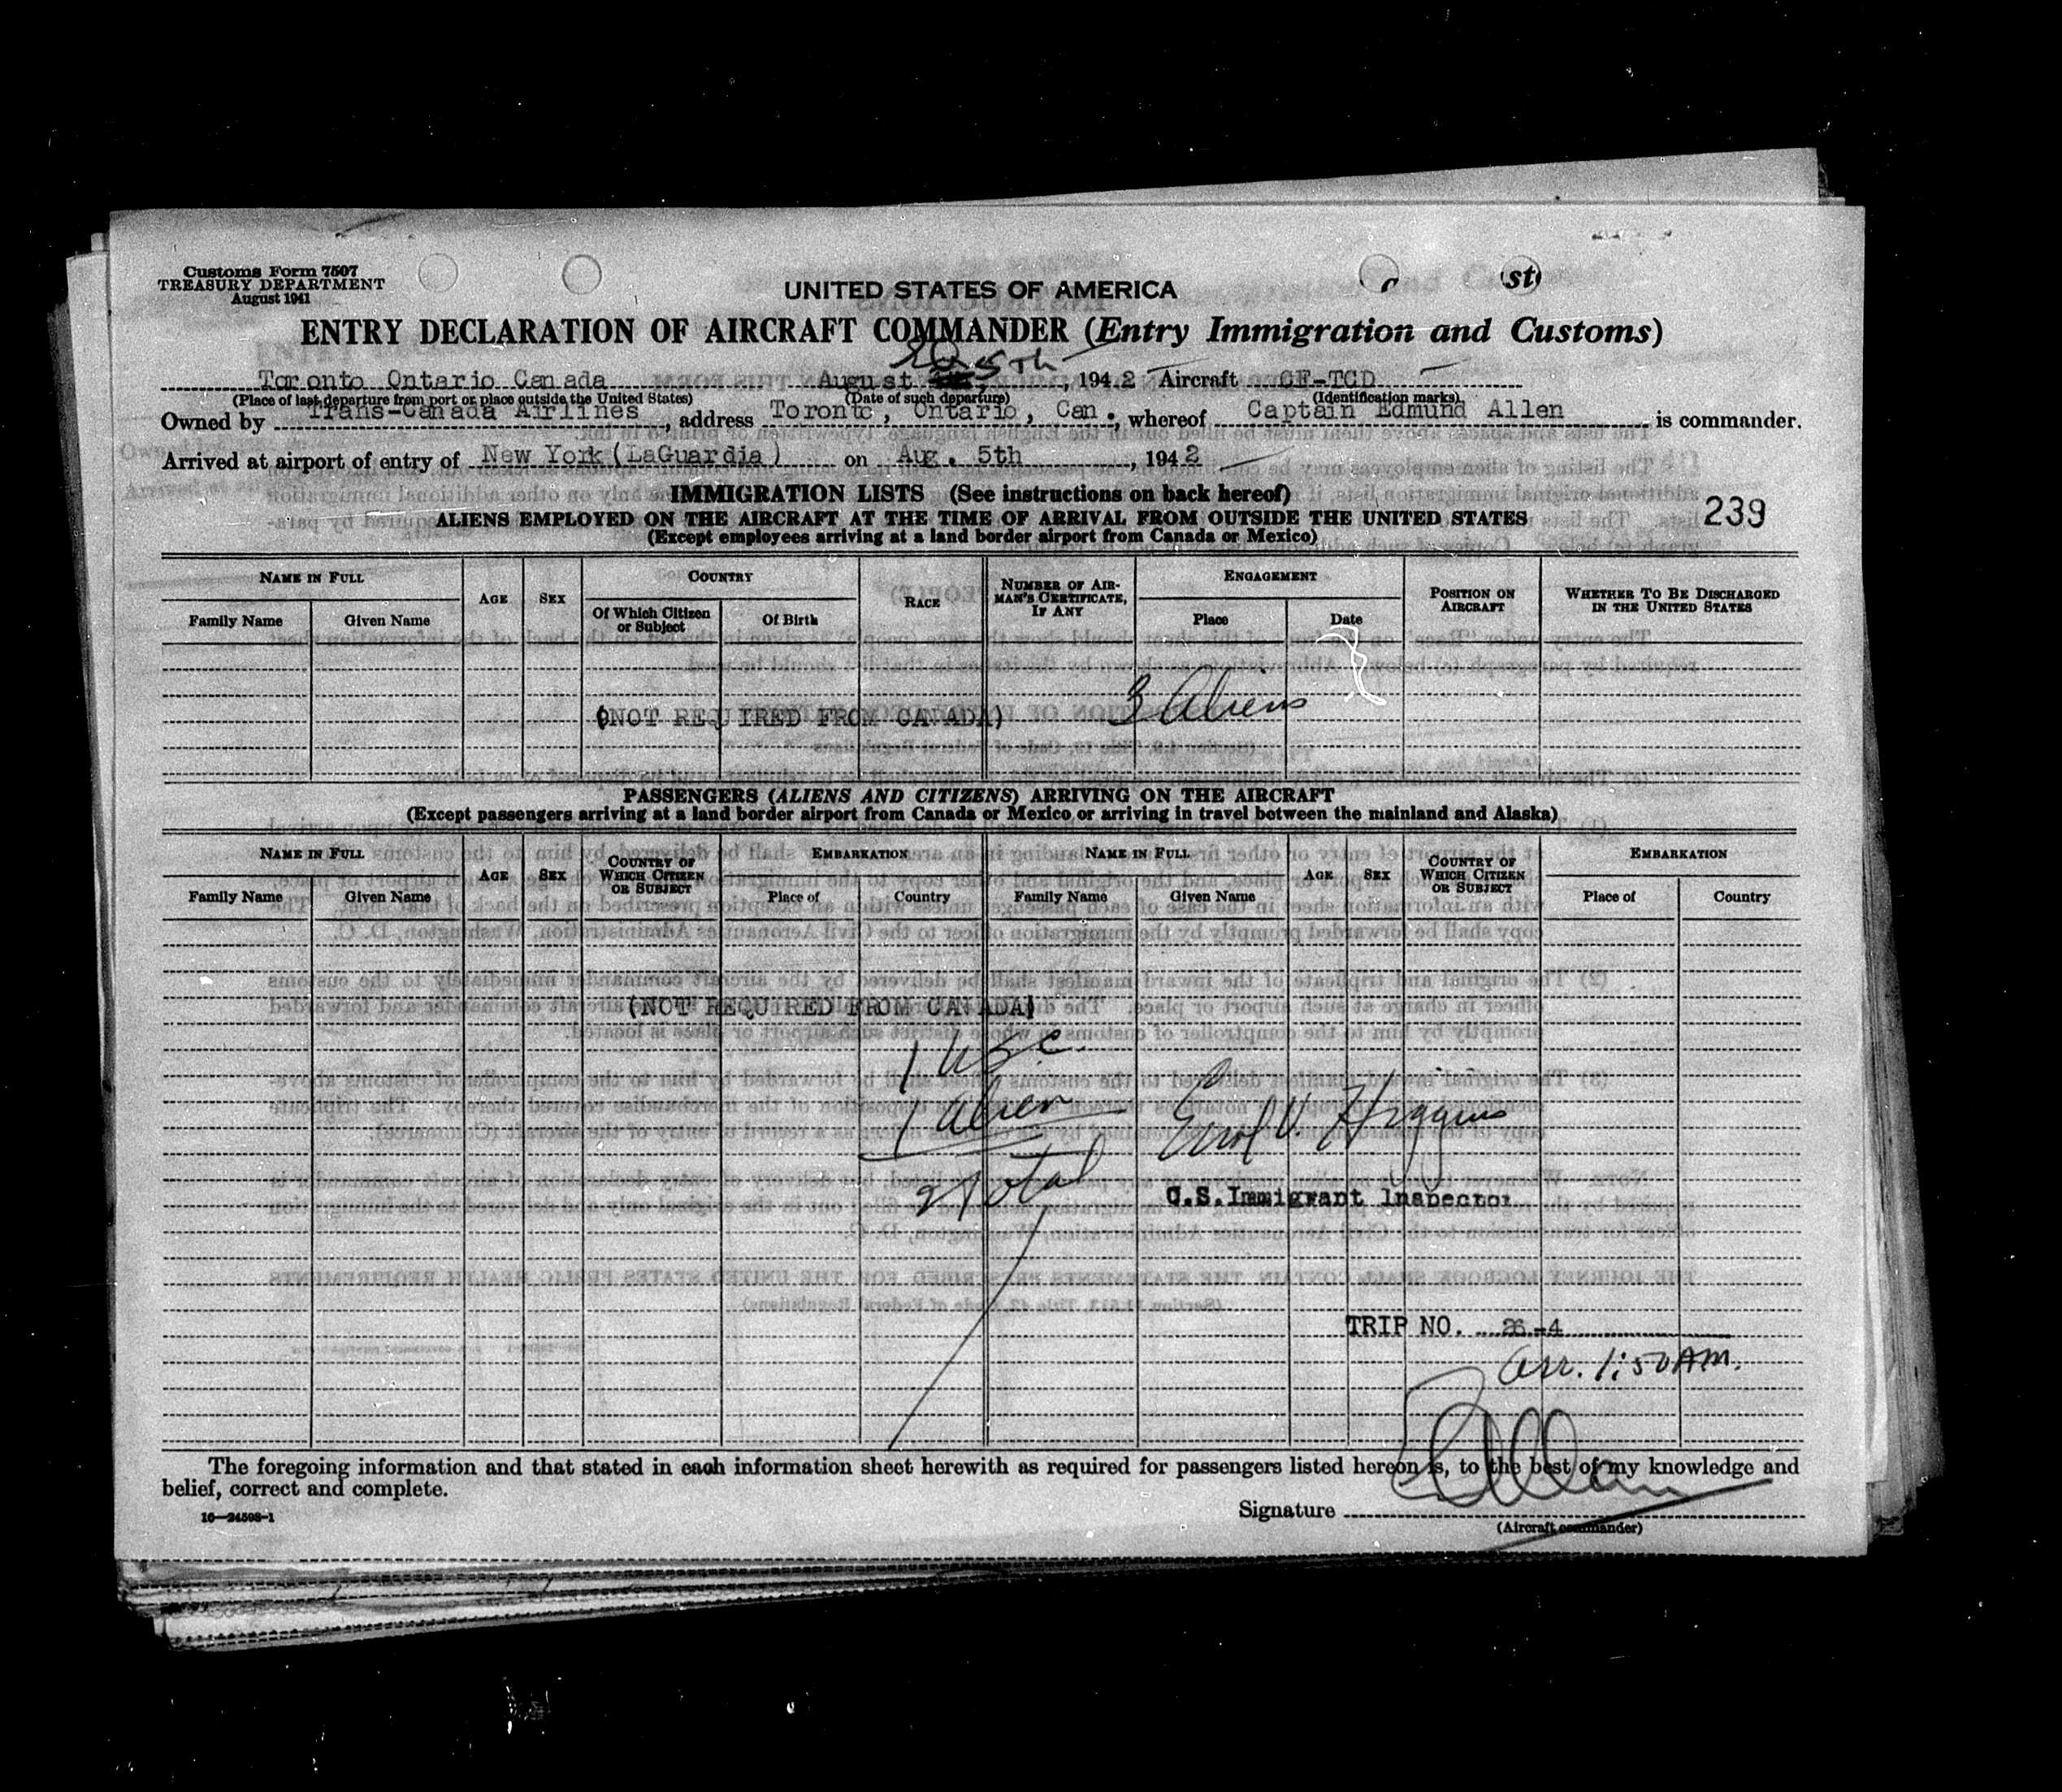 Customs Form 7507
TREASURY DEPARTMENT
August 1941
st
UNITED STATES OF AMERICA
ENTRY DECLARATION OF AIRCRAFT COMMANDER (Entry Immigration and Customs)
Toronto Ontario Canada August 5th, 1942 Aircraft CF-TCD
(Place of last departure from port or place outside the United States) (Date of such departure) (Identification marks)
Owned by Trans-Canada Airlines, address Toronto, Ontario, Can., whereof Captain Edmund Allen is commander.
Arrived at airport of entry of New York (LaGuardia) on Aug. 5th, 1942
IMMIGRATION LISTS (See instructions on back hereof)
239
ALIENS EMPLOYED ON THE AIRCRAFT AT THE TIME OF ARRIVAL FROM OUTSIDE THE UNITED STATES
(Except employees arriving at a land border airport from Canada or Mexico)
NAME IN FULL AGE SEX COUNTRY RACE NUMBER OF AIRMAN'S CERTIFICATE, IF ANY ENGAGEMENT POSITION ON AIRCRAFT WHETHER TO BE DISCHARGED IN THE UNITED STATES
Family Name Given Name Of Which Citizen or Subject Of Birth Place Date
(NOT REQUIRED FROM CANADA) 3 Aliens
PASSENGERS (ALIENS AND CITIZENS) ARRIVING ON THE AIRCRAFT
(Except passengers arriving at a land border airport from Canada or Mexico or arriving in travel between the mainland and Alaska)
NAME IN FULL AGE SEX COUNTRY OF WHICH CITIZEN OR SUBJECT EMBARKATION NAME IN FULL AGE SEX COUNTRY OF WHICH CITIZEN OR SUBJECT EMBARKATION
Family Name Given Name Place of Country Family Name Given Name Place of Country
(NOT REQUIRED FROM CANADA)
1 USC.
1 alien
2 total
Errol V. Higgins
U.S. Immigrant Inspector
TRIP NO. 26-4
arr. 1:50 AM.
The foregoing information and that stated in each information sheet herewith as required for passengers listed hereon is, to the best of my knowledge and
belief, correct and complete.
16—24598-1
Signature E Allen
(Aircraft commander)